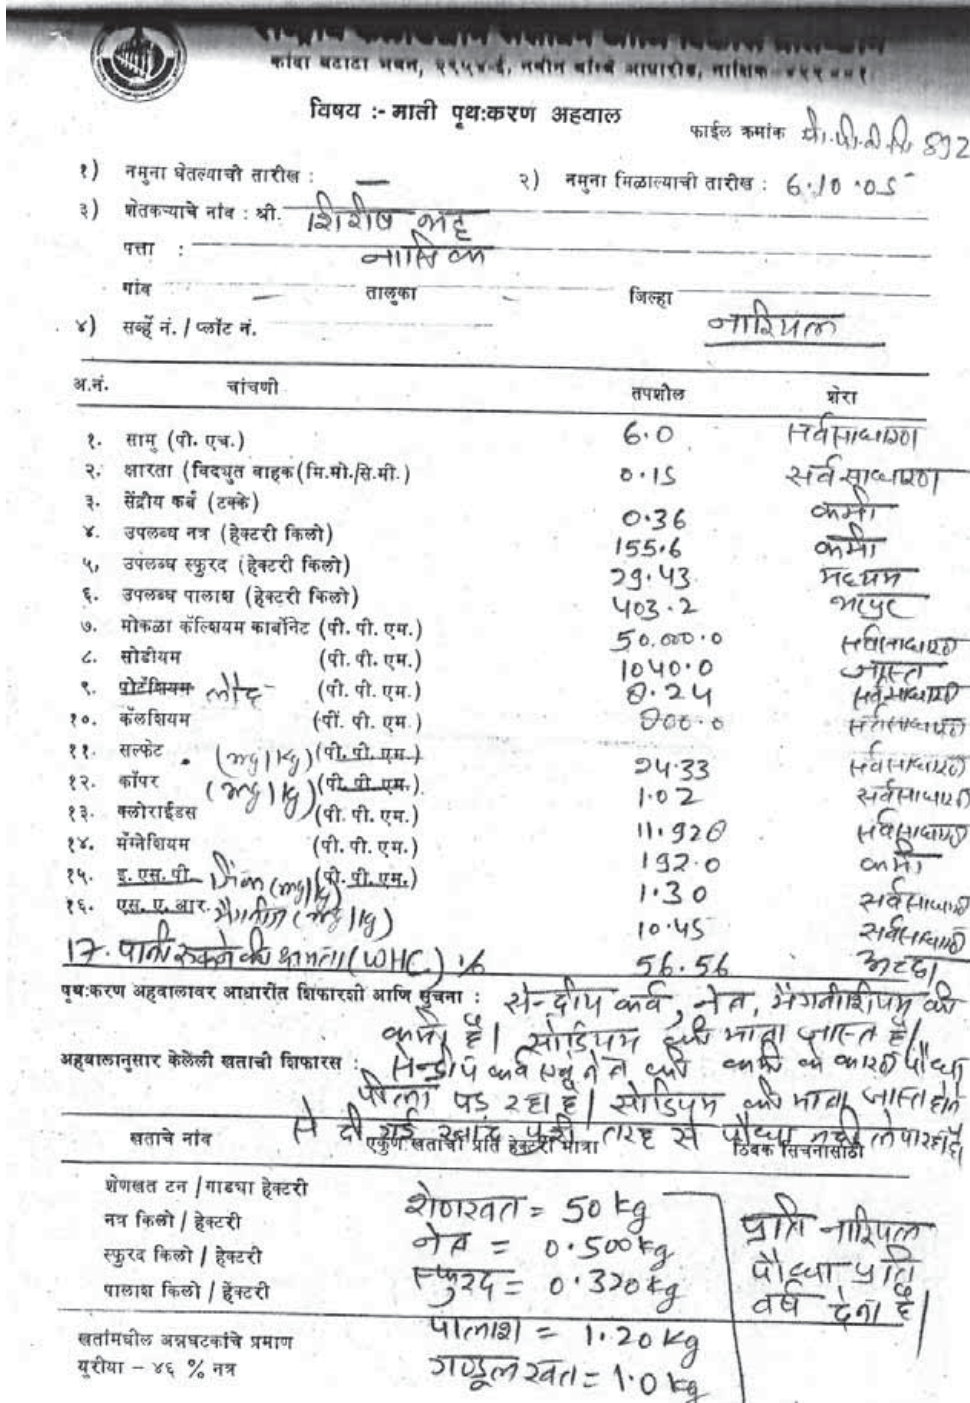 कांदा बटाटा भवन, २९५४-ई, नवीन बॉम्बे आग्रारोड, नाशिक
विषय :- माती पृथ:करण अहवाल
फाईल क्रमांक 892
१) नमुना घेतल्याची तारीख : —
२) नमुना मिळाल्याची तारीख : 6.10.05
३) शेतकऱ्याचे नांव : श्री. शिरीष भट्ट
पत्ता : नासिक
गांव तालुका जिल्हा
४) सर्व्हे नं. / प्लॉट नं. नारियल
अ.नं. चांचणी तपशील शेरा
१. सामु (पी. एच.) 6.0 सर्वसाधारण
२. क्षारता (विद्युत वाहक (मि.मी./सि.मी.) 0.15 सर्वसाधारण
३. सेंद्रीय कर्ब (टक्के) 0.36 कमी
४. उपलब्ध नत्र (हेक्टरी किलो) 155.6 कमी
५. उपलब्ध स्फुरद (हेक्टरी किलो) 29.43 मध्यम
६. उपलब्ध पालाश (हेक्टरी किलो) 403.2 भरपुर
७. मोकळा कॅल्शियम कार्बोनेट (पी. पी. एम.) 50.000.0 सर्वसाधारण
८. सोडीयम (पी. पी. एम.) 1040.0 जास्त
९. पोटॅशियम लोह (पी. पी. एम.) 8.24 सर्वसाधारण
१०. कॅलशियम (पीं. पी. एम.) 800.0 सर्वसाधारण
११. सल्फेट (mg/kg) (पी. पी. एम.) 24.33 सर्वसाधारण
१२. कॉपर (mg/kg) (पी. पी. एम.) 1.02 सर्वसाधारण
१३. क्लोराईडस (पी. पी. एम.) 11.928 सर्वसाधारण
१४. मॅग्नेशियम (पी. पी. एम.) 192.0 कमी
१५. इ. एस. पी. झिंक (mg/kg) (पी. पी. एम.) 1.30 सर्वसाधारण
१६. एस. ए. आर. मैगनीज (mg/kg) 10.45 सर्वसाधारण
17. पानी रुकने की क्षमता (WHC) % 56.56 अच्छा
पृथ:करण अहवालावर आधारीत शिफारशी आणि सुचना : सेन्द्रीय कर्ब, नेत्र, मैगनीशियम की
कमी है। सोडियम की मात्रा जास्त है।
अहवालानुसार केलेली खताची शिफारस : सेन्द्रीय कर्ब एवं नेत्र की कमी के कारण पौध्धा
पीला पड रहा है। सोडियम की मात्रा जास्त होने
से दी गई खाद पुरी तरह से पौध्धा नही ले पा रहा है।
खताचे नांव एकुण खताची प्रति हेक्टरी मात्रा ठिबक सिंचनासाठी
शेणखत टन / गाडया हेक्टरी शेणखत = 50 kg
नत्र किलो / हेक्टरी नेत्र = 0.500 kg प्रति नारियल
स्फुरद किलो / हेक्टरी स्फुरद = 0.320 kg पौध्धा प्रति
पालाश किलो / हेक्टरी पालाश = 1.20 kg वर्ष देना है।
खतांमधील अन्नघटकांचे प्रमाण
युरीया - ४६ % नत्र गाण्डूल खत = 1.0 kg